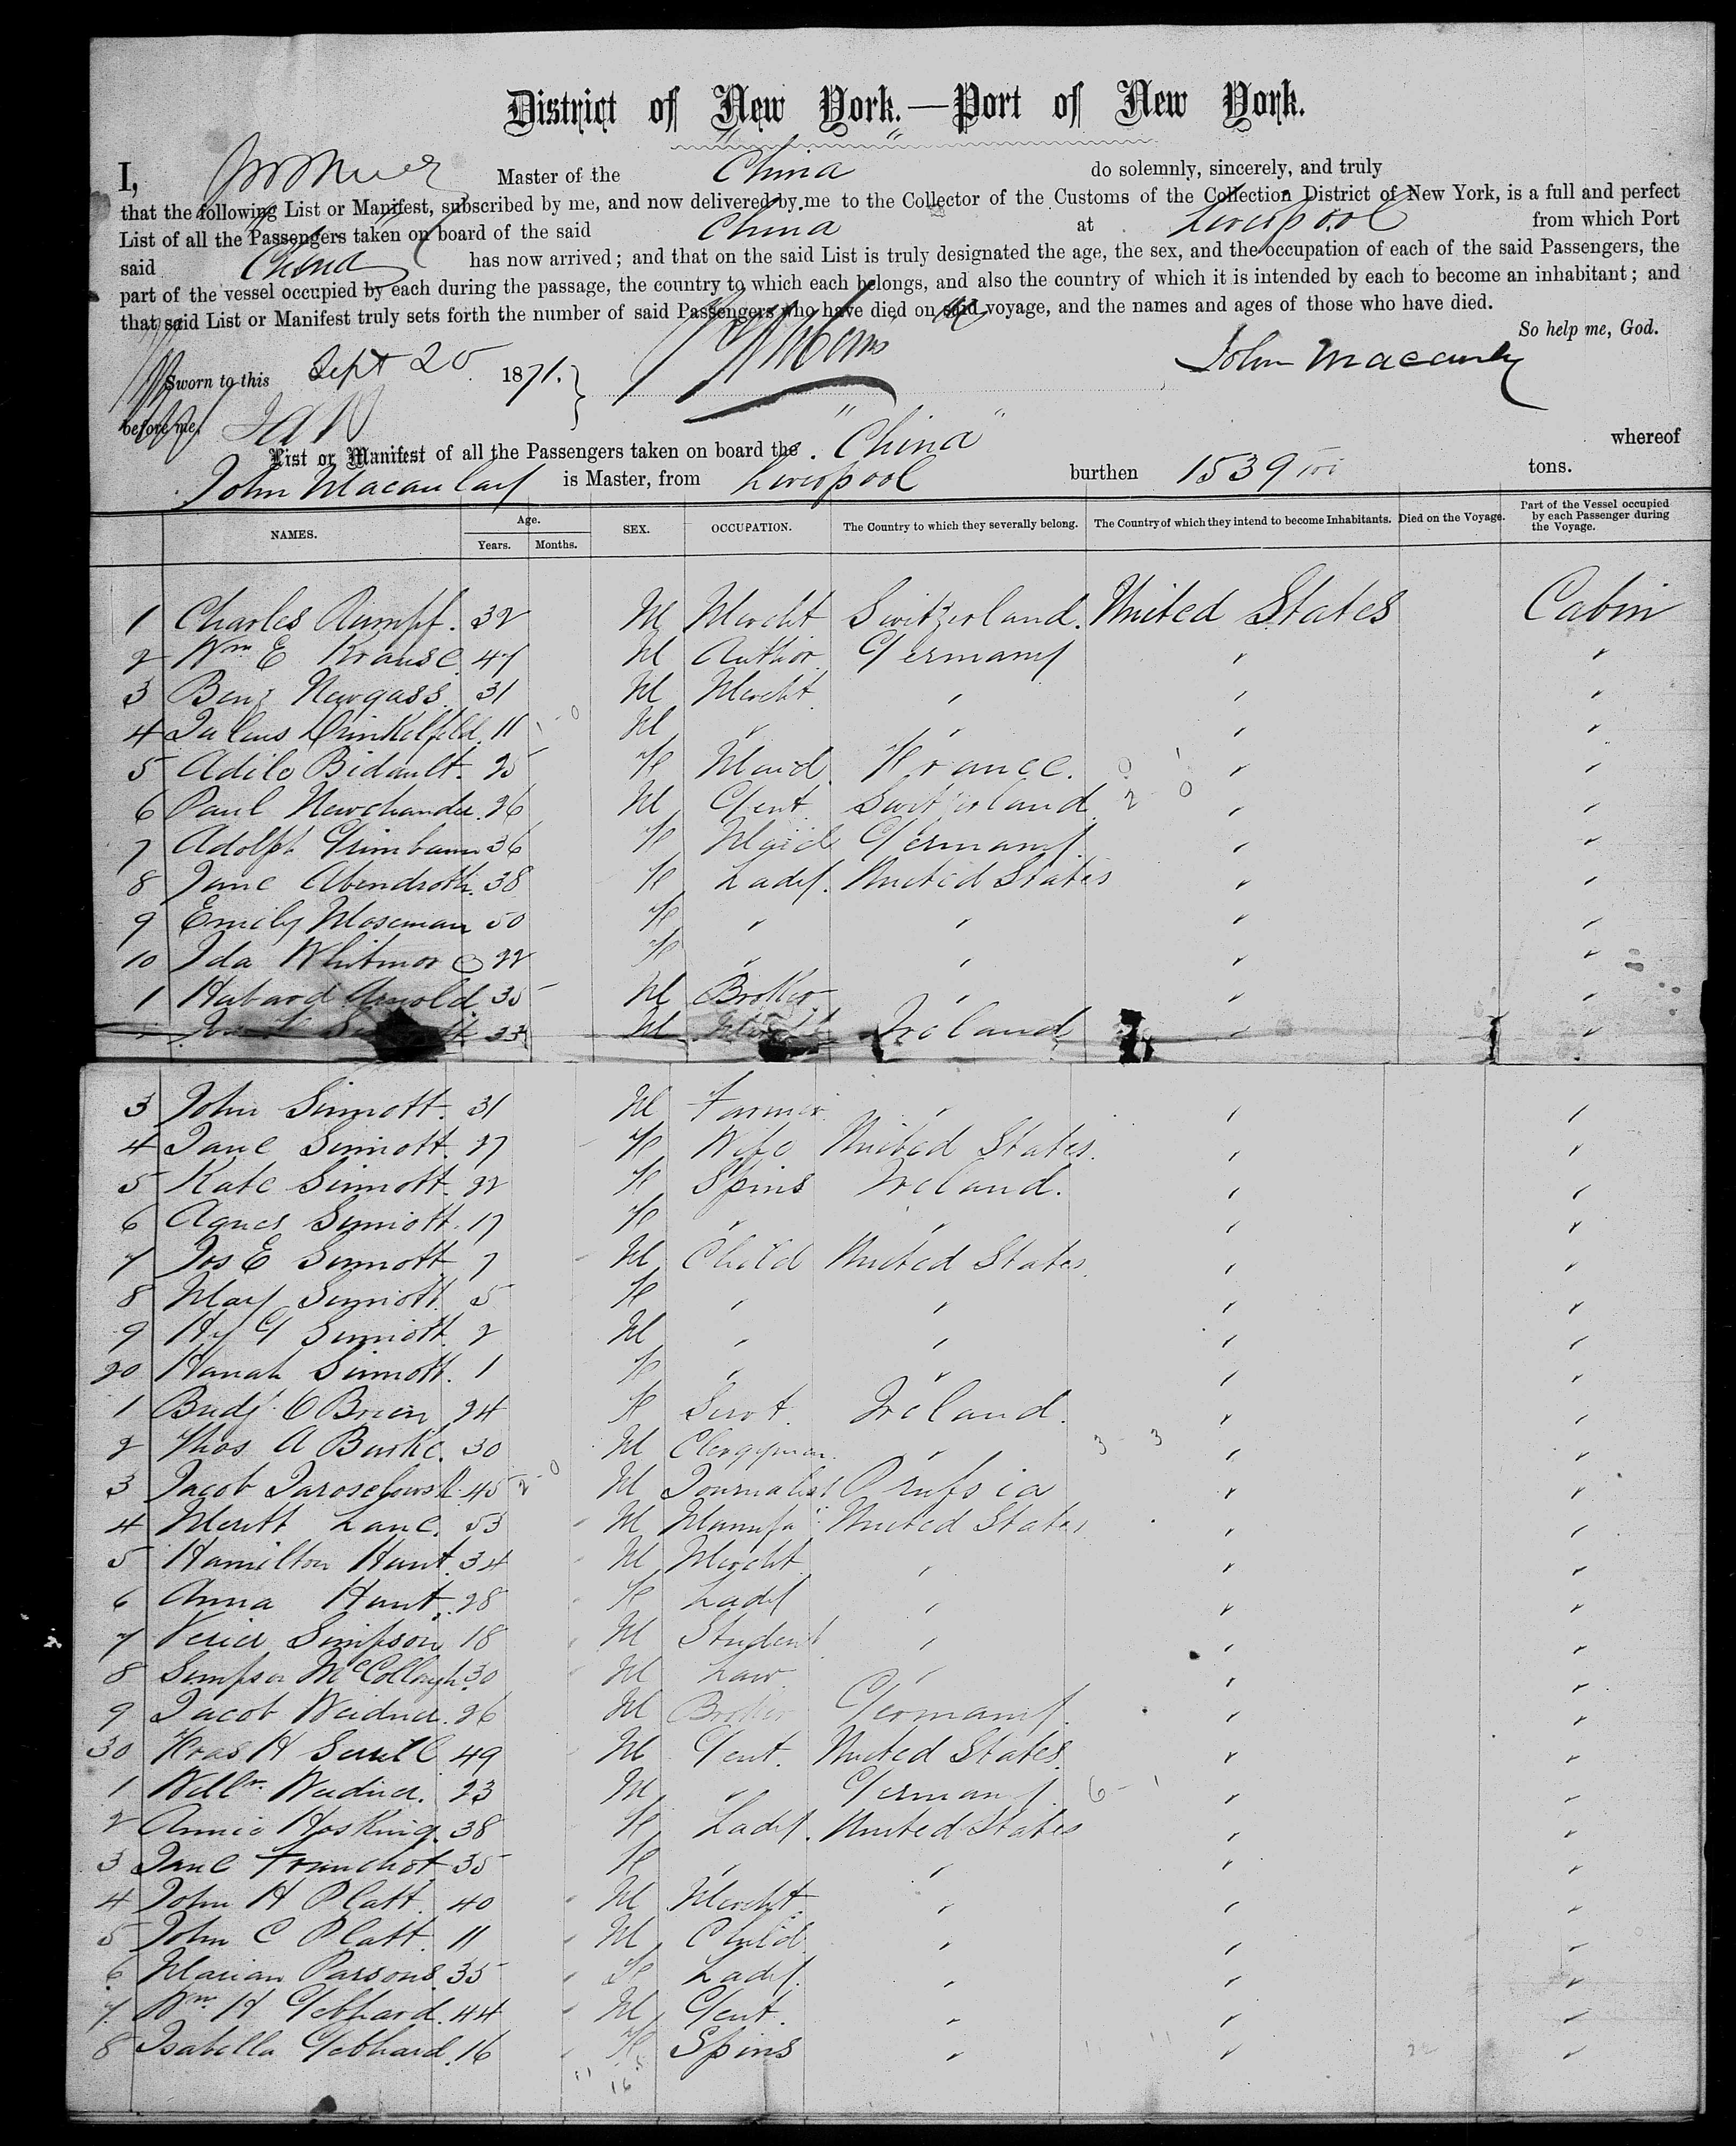 District of New York.—Port of New York.
I, Master of the "China" do solemnly, sincerely, and truly
that the following List or Manifest, subscribed by me, and now delivered by me to the Collector of the Customs of the Collection District of New York, is a full and perfect
List of all the Passengers taken on board of the said China at Liverpool from which Port
said China has now arrived; and that on the said List is truly designated the age, the sex, and the occupation of each of the said Passengers, the
part of the vessel occupied by each during the passage, the country to which each belongs, and also the country of which it is intended by each to become an inhabitant; and
that said List or Manifest truly sets forth the number of said Passengers who have died on said voyage, and the names and ages of those who have died.
So help me, God.
Sworn to this Sept 20 1871. John Macaulay
before me,
List or Manifest of all the Passengers taken on board the "China" whereof
John Macaulay is Master, from Liverpool burthen 1539 tons.
NAMES. Age. Years. Months. SEX. OCCUPATION. The Country to which they severally belong. The Country of which they intend to become Inhabitants. Died on the Voyage. Part of the Vessel occupied by each Passenger during the Voyage.
1 Charles Rumpf. 32 M Mercht Switzerland. United States Cabin
2 Wm E Krause 47 M Author Germany " "
3 Benj Newgass 31 M Mercht " " "
4 Julius 11 M " " " "
5 Adile Bidault. 25 F Maid France. " "
6 Paul 26 M Gent Switzerland " "
7 Adolph 36 F Maid Germany " "
8 Jane Abendroth. 38 F Lady. United States " "
9 Emily Moseman 50 F " " " "
10 Ida Whitmore 22 F " " " "
1 Hubard Arnold 35 M Broker " " "
33 M Ireland " "
3 John Sinnott. 31 M Farmer " " "
4 Jane Sinnott. 27 F Wife United States. " "
5 Kate Sinnott. 22 F Spins Ireland. " "
6 Agnes Sinnott. 17 F " " " "
7 Jos E Sinnott 7 M Child United States " "
8 Mary Sinnott. 5 F " " " "
9 Hy G Sinnott. 2 M " " " "
20 Hanah Sinnott. 1 F " " " "
1 Bridj. O Brien 24 F Servt. Ireland. " "
2 Thos A Burke. 30 M Clergyman " " "
3 Jacob 45 M Journalist Prussia " "
4 Meritt Lane. 53 M Manufr United States " "
5 Hamilton Hunt. 34 M Mercht " " "
6 Anna Hunt. 28 F Lady " " "
7 Simpson 18 M Student " " "
8 Simpson McCollough. 30 M Law " " "
9 Jacob Weidner. 26 M Broker Germany. " "
30 49 M Gent. United States. " "
1 Willm. Weidner. 23 M " Germany. " "
2 Annie Hosking. 38 F Lady. United States " "
3 Jane Franchot 35 F " " " "
4 John H Platt. 40 M Mercht. " " "
5 John C Platt. 11 M Child " " "
6 Marian Parsons. 35 F Lady. " " "
7 Wm. H Gebhard. 44 M Gent. " " "
8 Isabella Gebhard. 16 F Spins " " "